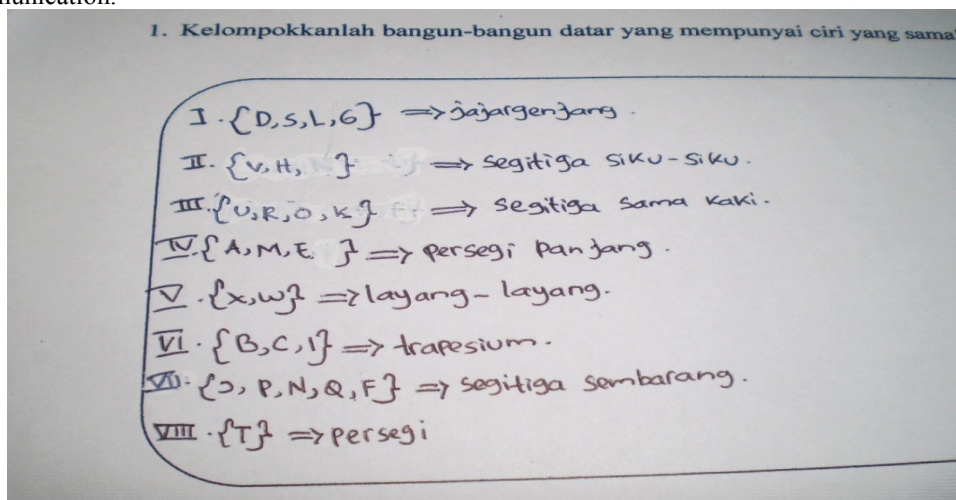 munication.
1. Kelompokkanlah bangun-bangun datar yang mempunyai ciri yang sama
I. {D,S,L,G} => jajargenjang.
II. {V,H, } => segitiga siku-siku.
III. {U,R,O,K} => segitiga sama kaki.
IV. {A,M,E } => persegi panjang.
V. {X,W} => layang-layang.
VI. {B,C,I} => trapesium.
VII. {J, P,N,Q,F} => segitiga sembarang.
VIII. {T} => persegi